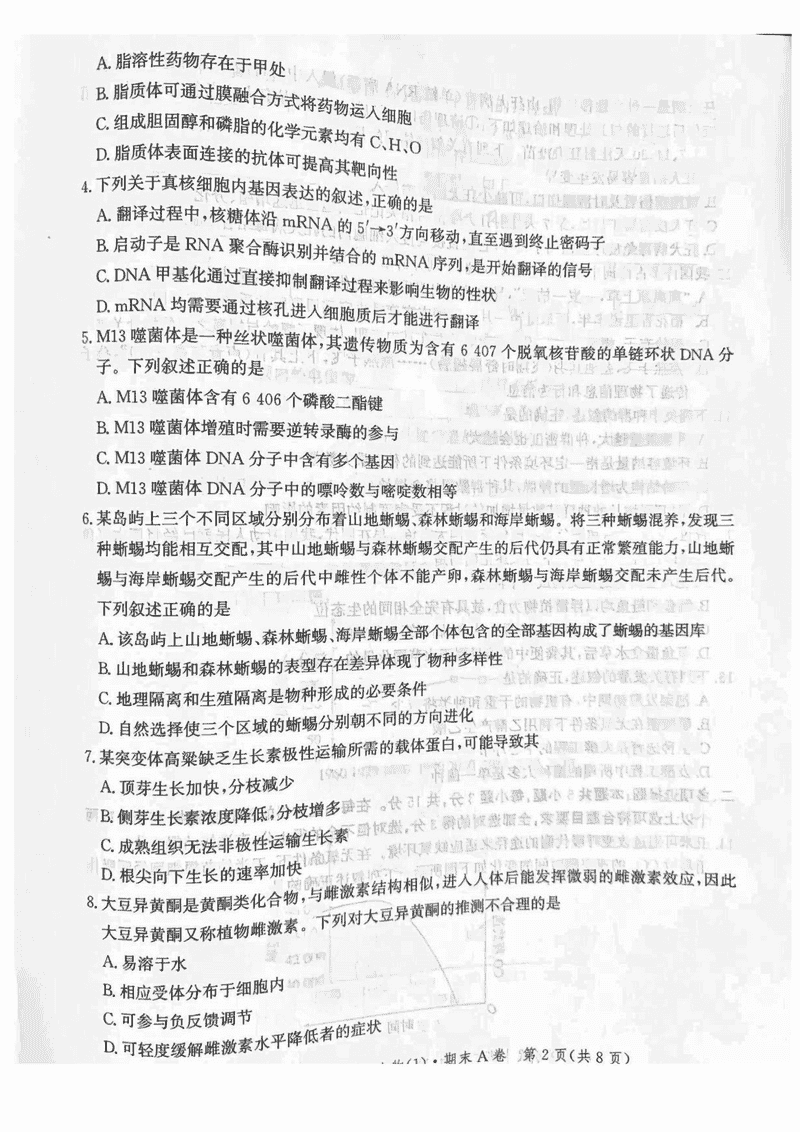 A. 脂溶性药物存在于甲处
B. 脂质体可通过膜融合方式将药物运入细胞
C. 组成胆固醇和磷脂的化学元素均有 C、H、O
D. 脂质体表面连接的抗体可提高其靶向性
4. 下列关于真核细胞内基因表达的叙述,正确的是
A. 翻译过程中,核糖体沿 mRNA 的 5′→3′方向移动,直至遇到终止密码子
B. 启动子是 RNA 聚合酶识别并结合的 mRNA 序列,是开始翻译的信号
C. DNA 甲基化通过直接抑制翻译过程来影响生物的性状
D. mRNA 均需要通过核孔进入细胞质后才能进行翻译
5. M13 噬菌体是一种丝状噬菌体,其遗传物质为含有 6 407 个脱氧核苷酸的单链环状 DNA 分
子。下列叙述正确的是
A. M13 噬菌体含有 6 406 个磷酸二酯键
B. M13 噬菌体增殖时需要逆转录酶的参与
C. M13 噬菌体 DNA 分子中含有多个基因
D. M13 噬菌体 DNA 分子中的嘌呤数与嘧啶数相等
6. 某岛屿上三个不同区域分别分布着山地蜥蜴、森林蜥蜴和海岸蜥蜴。将三种蜥蜴混养,发现三
种蜥蜴均能相互交配,其中山地蜥蜴与森林蜥蜴交配产生的后代仍具有正常繁殖能力,山地蜥
蜴与海岸蜥蜴交配产生的后代中雌性个体不能产卵,森林蜥蜴与海岸蜥蜴交配未产生后代。
下列叙述正确的是
A. 该岛屿上山地蜥蜴、森林蜥蜴、海岸蜥蜴全部个体包含的全部基因构成了蜥蜴的基因库
B. 山地蜥蜴和森林蜥蜴的表型存在差异体现了物种多样性
C. 地理隔离和生殖隔离是物种形成的必要条件
D. 自然选择使三个区域的蜥蜴分别朝不同的方向进化
7. 某突变体高粱缺乏生长素极性运输所需的载体蛋白,可能导致其
A. 顶芽生长加快,分枝减少
B. 侧芽生长素浓度降低,分枝增多
C. 成熟组织无法非极性运输生长素
D. 根尖向下生长的速率加快
8. 大豆异黄酮是黄酮类化合物,与雌激素结构相似,进入人体后能发挥微弱的雌激素效应,因此
大豆异黄酮又称植物雌激素。下列对大豆异黄酮的推测不合理的是
A. 易溶于水
B. 相应受体分布于细胞内
C. 可参与负反馈调节
D. 可轻度缓解雌激素水平降低者的症状
(1)·期末 A 卷 第 2 页(共 8 页)